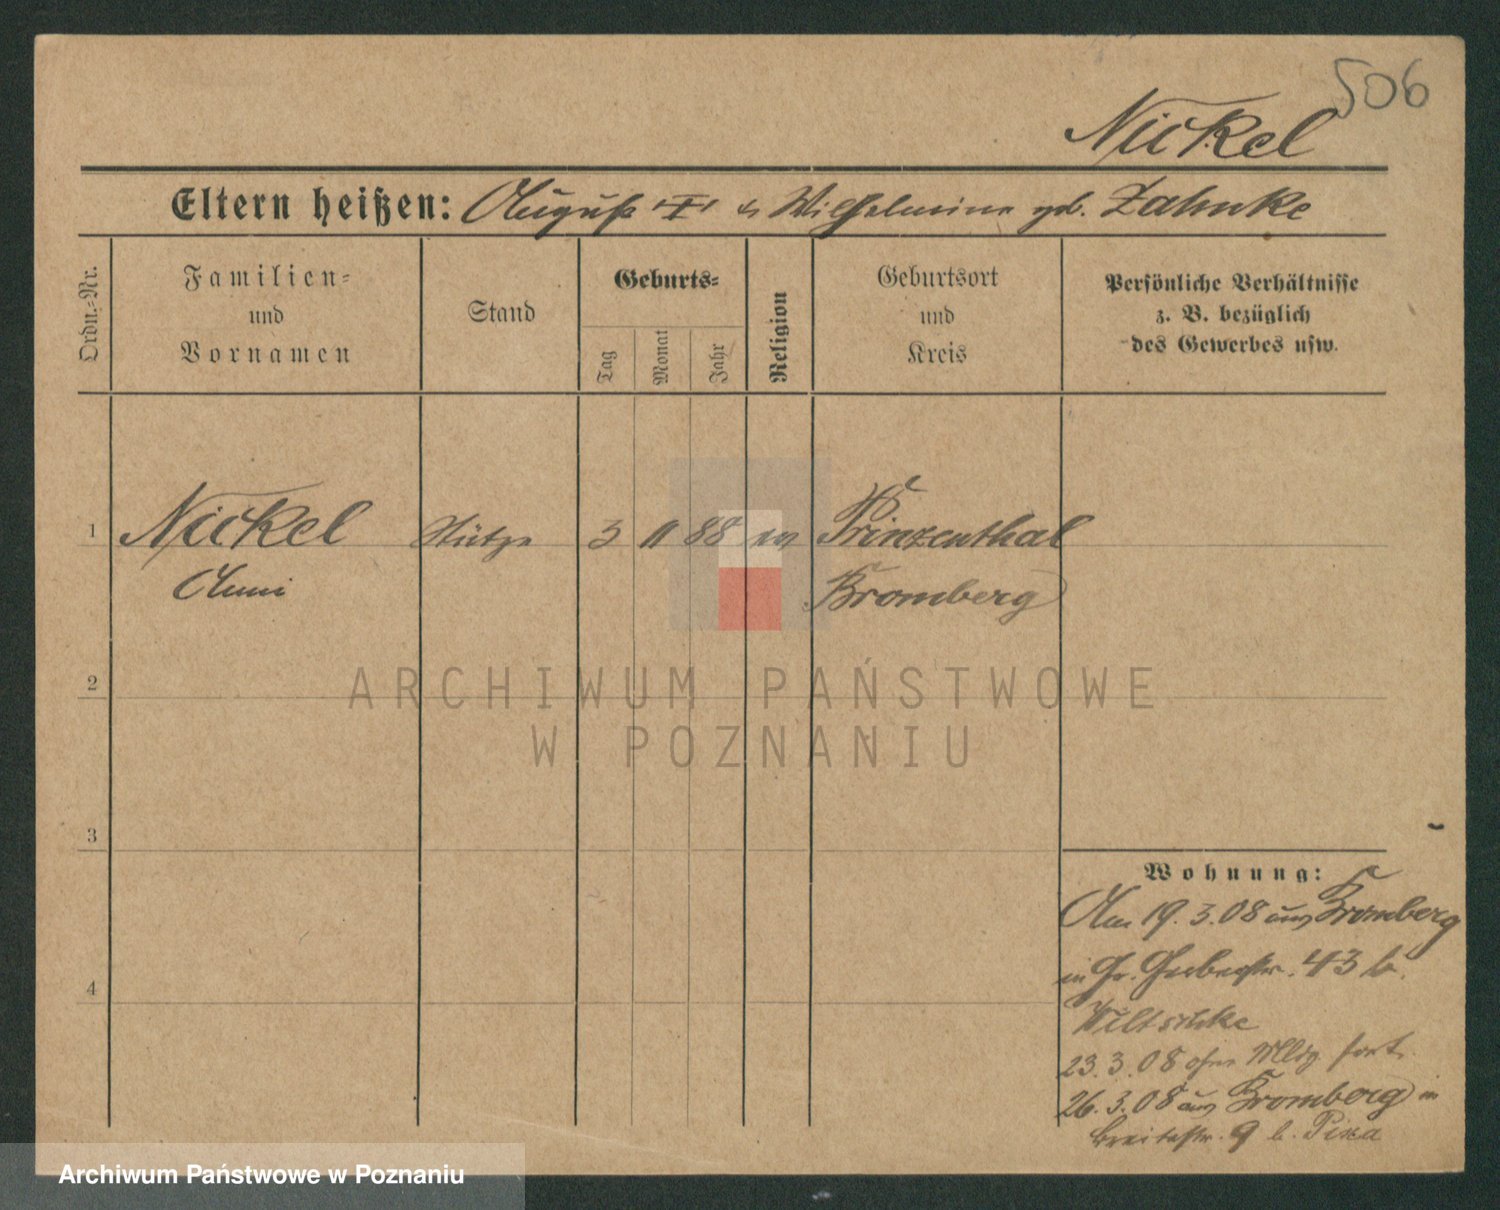 506
Nickel
Eltern heißen: August "†" & Wilhelmine geb. Zahnke
Ordn.-Nr.
Familien-
und
Vornamen
Stand
Geburts-
Tag
Monat
Jahr
Religion
Geburtsort
und
Kreis
Persönliche Verhältnisse
z. B. bezüglich
des Gewerbes usw.
1
Nickel
Stütze
3
11
88
ev
Prinzenthal
Anni
Bromberg
ARCHIWUM PAŃSTWOWE
W POZNANIU
2
3
4
Wohnung:
Am 19.3.08 aus Bromberg
in Gr. 43 b.
Wiltschke
23.3.08 ohne Mldg fort.
26.3.08 aus Bromberg in
Breitestr. 9 b. Pixa
Archiwum Państwowe w Poznaniu